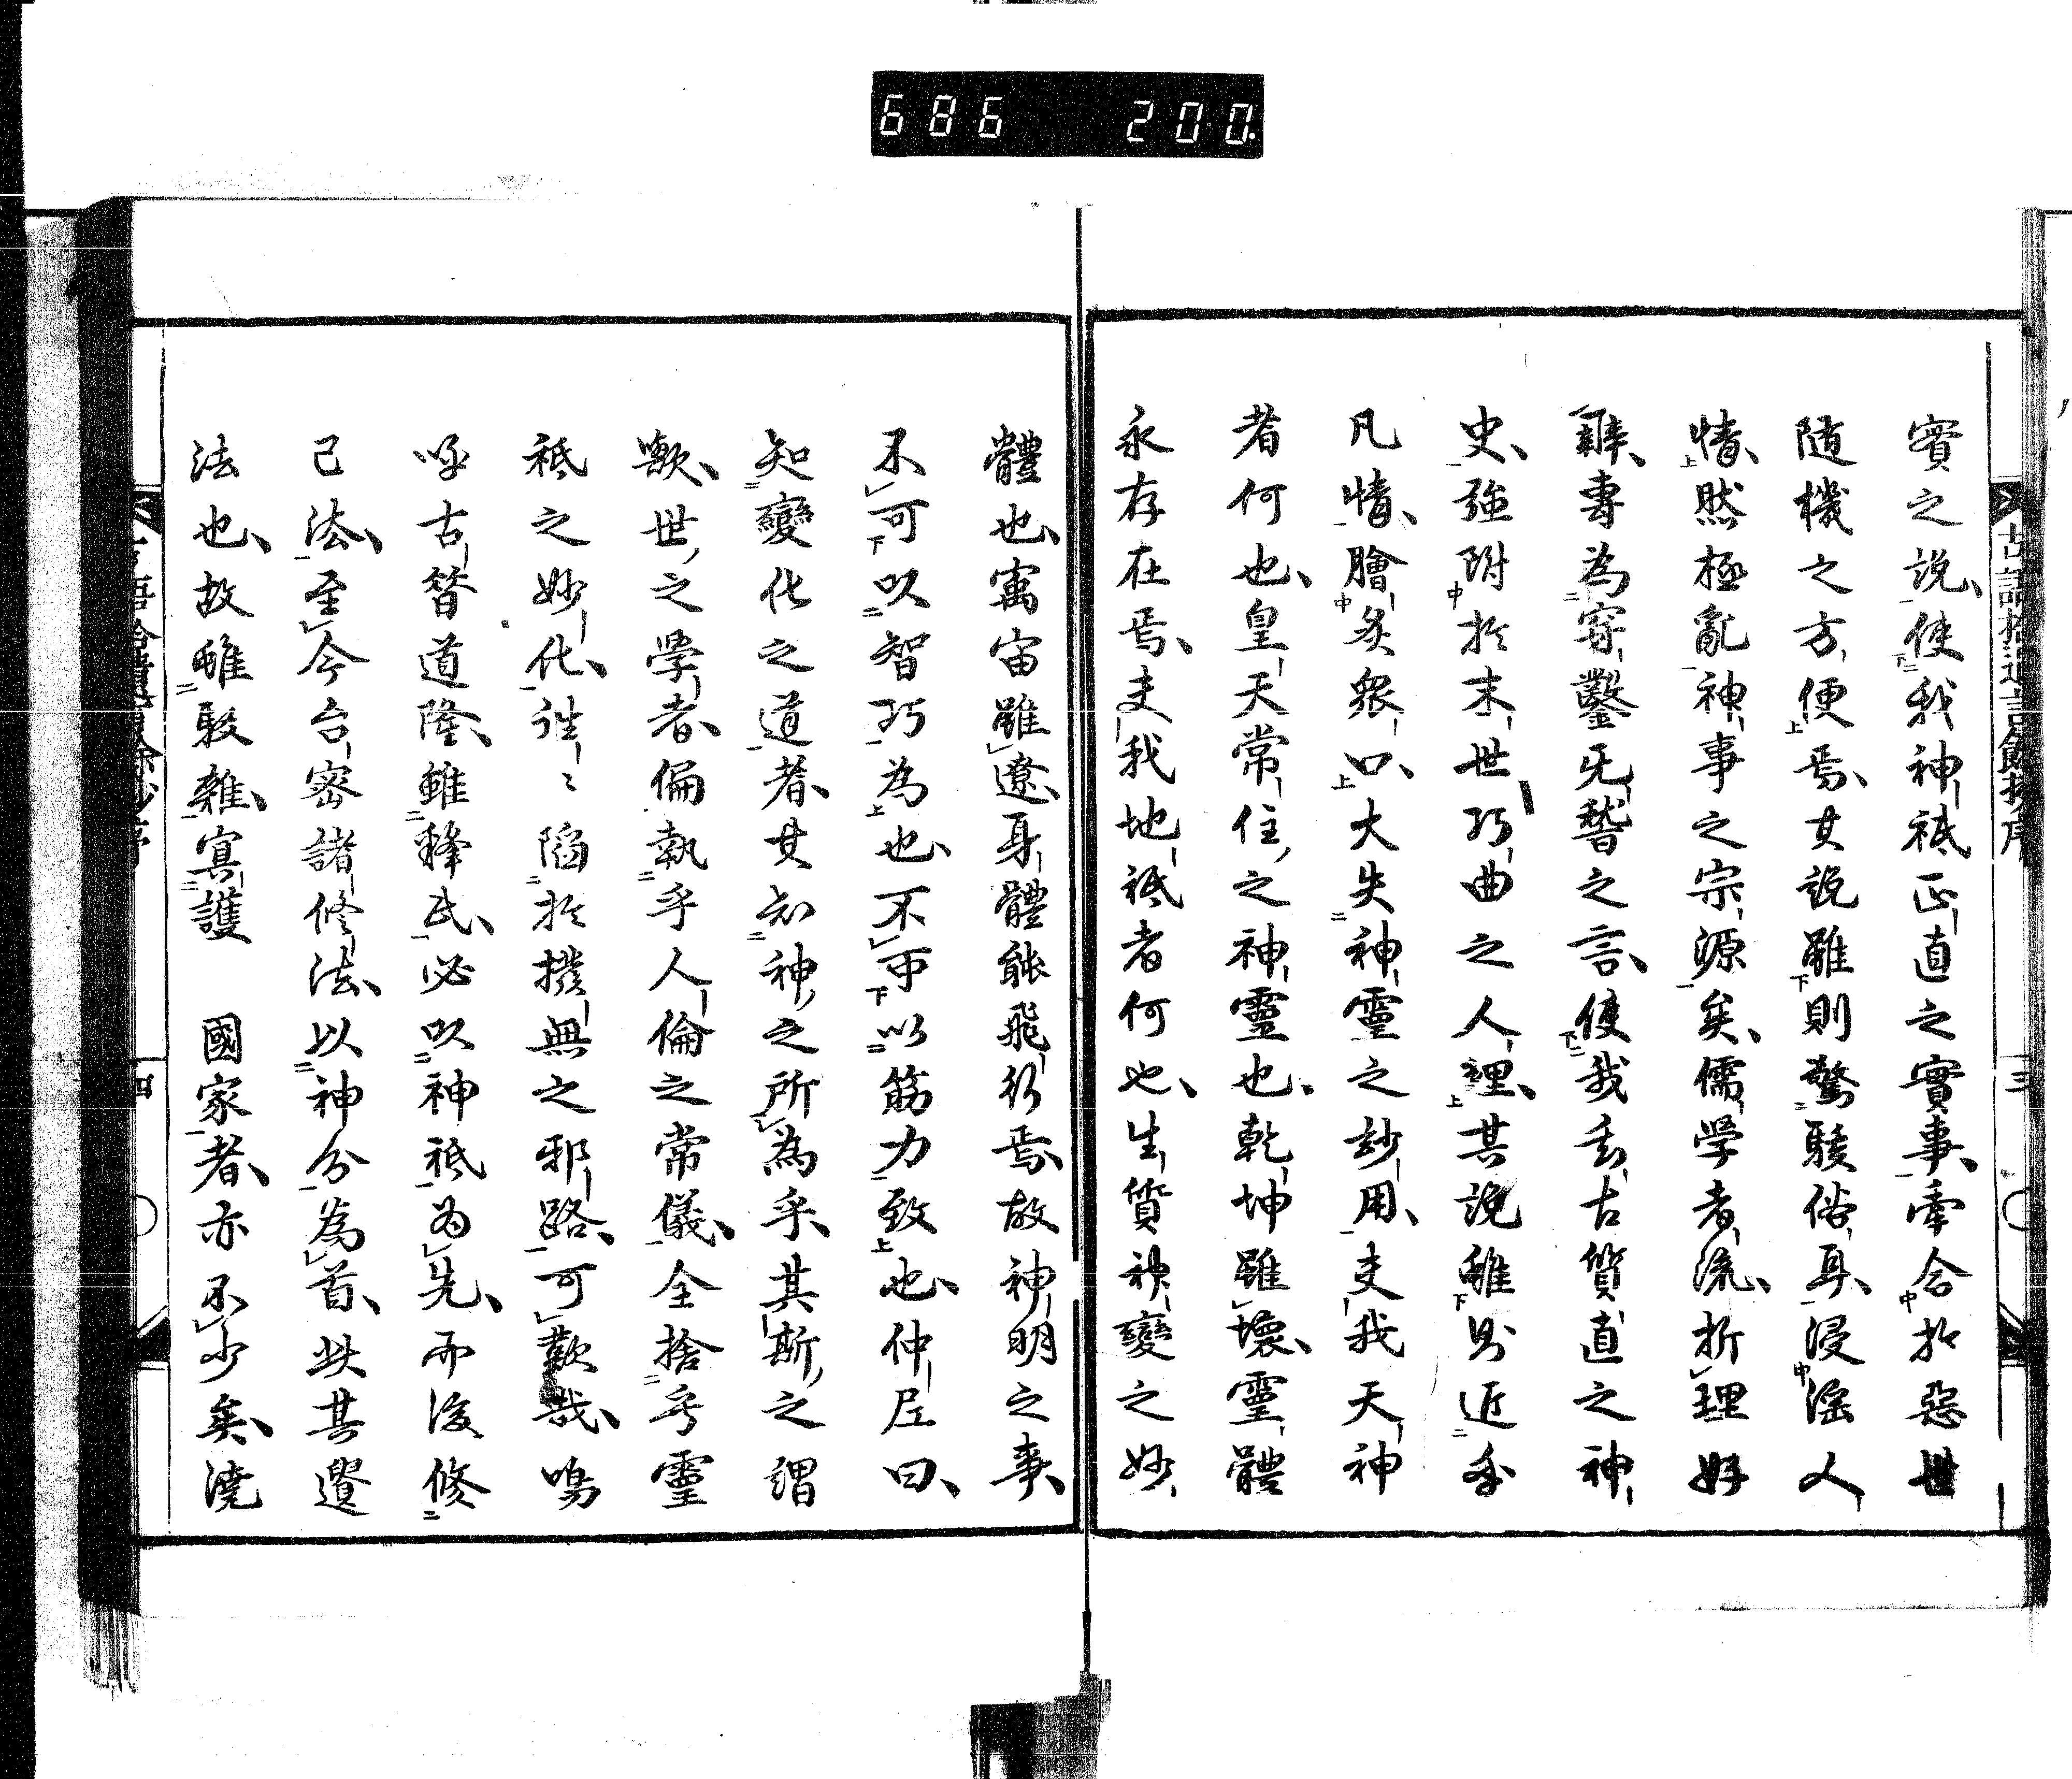 686 200.
古語拾遺言餘抄序
三
實之說、使我神祇正直之實事、牽合於惡世
隨機之方便焉、其說雖則驚駭俗耳、浸淫人
情、然極亂神事之宗源矣、儒學者流、折理好
辭、專為穿鑿旡稽之言、使我上古質直之神
史、強附於末世巧曲之人裡、其說雖則近乎
凡情、膾炙衆口、大失神靈之妙用、夫我天神
者何也、皇天常住之神靈也、乾坤雖壞、靈體
永存在焉、夫我地祇者何也、生質神變之妙
體也、寓宙雖遼、身體能飛行焉、故神明之事、
不可以智巧為也、不可以筋力致也、仲尼曰、
知變化之道者、其知神之所為乎、其斯之謂
歟、世之學者、偏執乎人倫之常儀、全捨乎靈
祇之妙化、往々陷於撥無之邪路、可歎哉、嗚
呼古昔道隆、雖釋氏、必以神祇為先、而後修
己法、至今台密諸修法、以神分為首、此其遺
法也、故雖駁雜、冥護 國家者、亦不少矣、澆
四